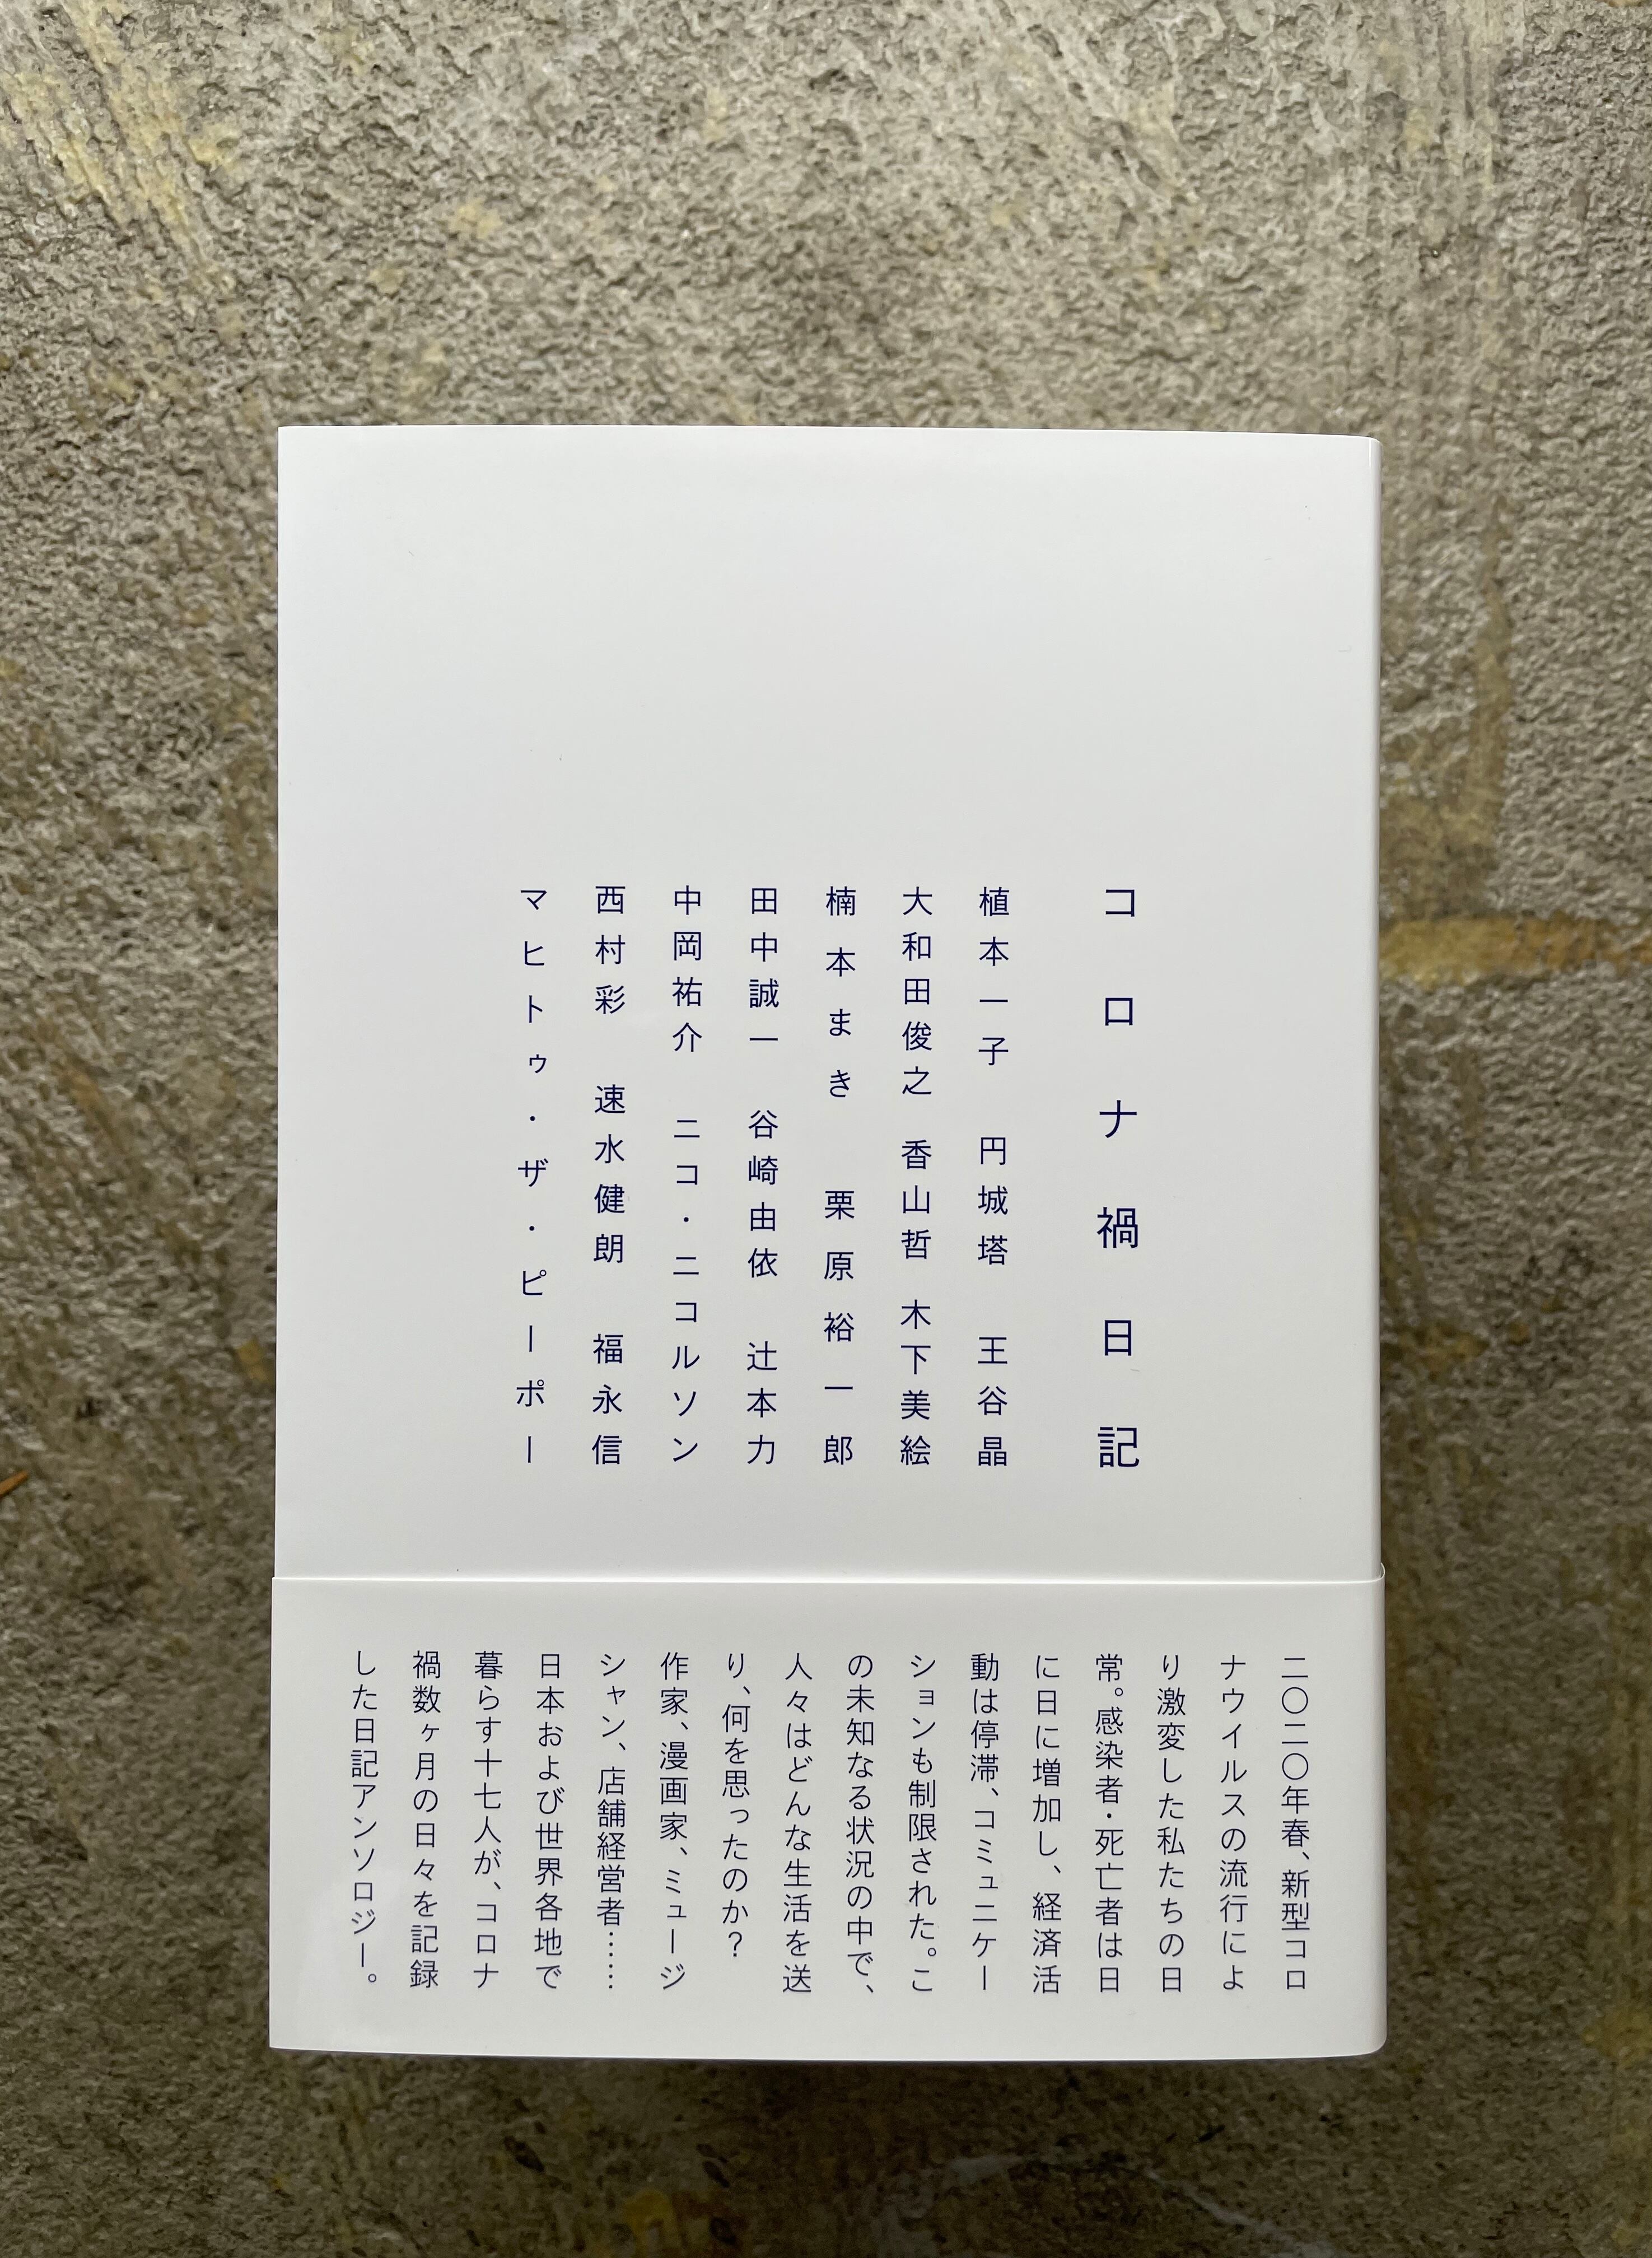 コロナ禍日記
植本一子　円城塔　王谷晶
大和田俊之　香山哲　木下美絵
楠本まき　栗原裕一郎
田中誠一　谷崎由依　辻本力
中岡祐介　ニコ・ニコルソン
西村彩　速水健朗　福永信
マヒトゥ・ザ・ピーポー
二〇二〇年春、新型コロ
ナウイルスの流行によ
り激変した私たちの日
常。感染者・死亡者は日
に日に増加し、経済活
動は停滞、コミュニケー
ションも制限された。こ
の未知なる状況の中で、
人々はどんな生活を送
り、何を思ったのか？
作家、漫画家、ミュージ
シャン、店舗経営者……
日本および世界各地で
暮らす十七人が、コロナ
禍数ヶ月の日々を記録
した日記アンソロジー。